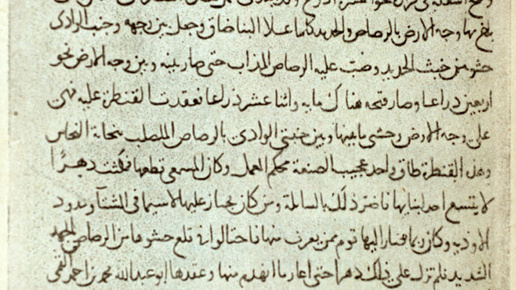 بها وجه الارض بالرصاص والحديد كلما علا البنا ضاق وجعل بين وجهه وجنب الوادى
حشو من خبث الحديد وصب عليه الرصاص المذاب حتى صار بينه وبين وجه الارض نحو
اربعين ذراعا وصار فتحه هناك مايه واثنا عشر ذراعا فعقدت القنطرة عليه فهى
على وجه الارض وحشى مابينها وبين جنبتى الوادى بالرصاص المصلب بنحاتة النحاس
وهذه القنطرة طاق واحد عجيب الصنعة محكم العمل وكان المسمعى قطعها فمكثت دهرًا
لا يتسع احد لبنايها فاضر ذلك بالسابلة ومن كان يجتاز عليها لا سيما فى الشتآ ومدود
الاودية وكان ربما صار اليها قوم ممن يقرب منها فاحتالوا فى قلع حشوها من الرصاص بالجهد
الشديد فلم تزل على ذلك دهرا حتى اعاد ما انهدم منها وعقدها ابو عبدالله محمد بن احمد القمى